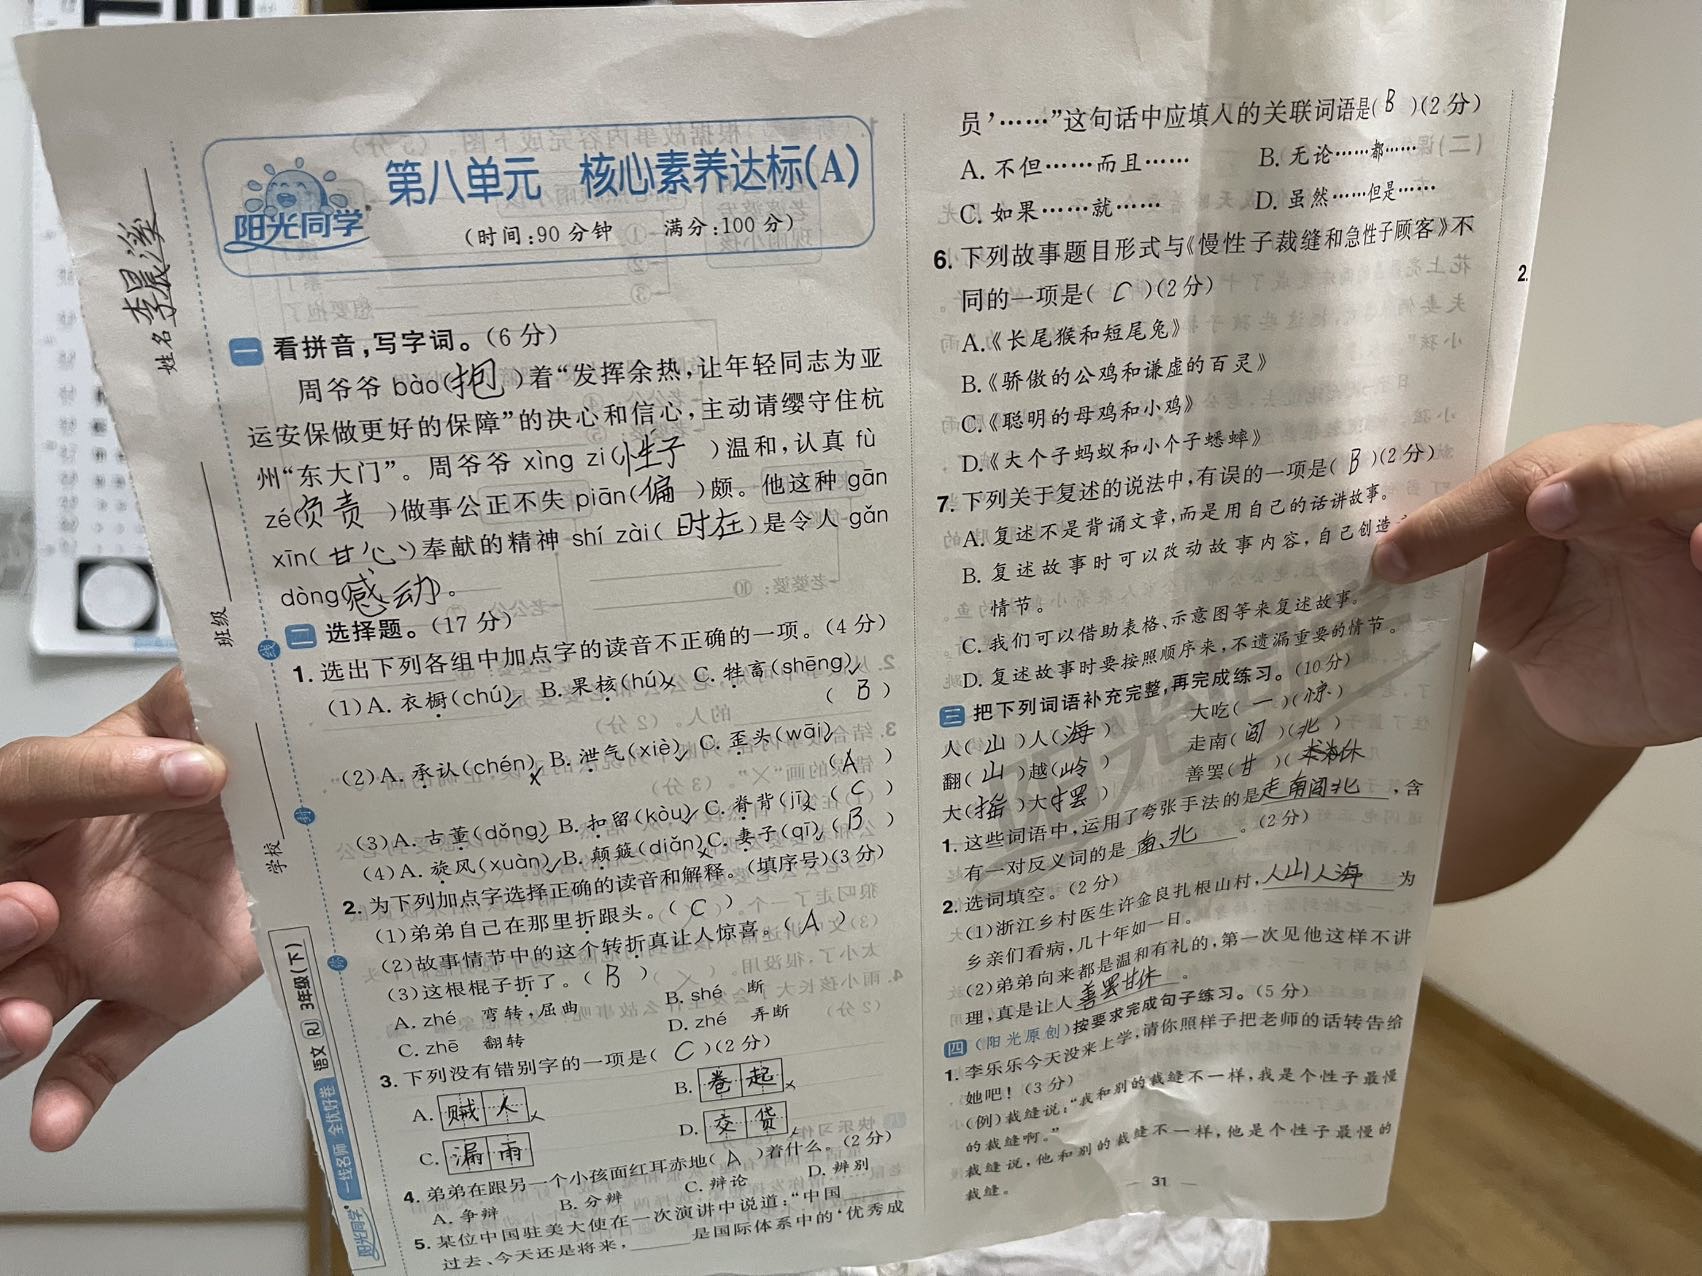 姓名 李晨溪
班级
学校
线
封
阳光同学 一线名师 全优好卷 语文 RJ 3年级(下)
阳光同学
第八单元 核心素养达标(A)
(时间:90分钟 满分:100分)
一 看拼音,写字词。(6分)
周爷爷 bào(抱)着“发挥余热,让年轻同志为亚
运安保做更好的保障”的决心和信心,主动请缨守住杭
州“东大门”。周爷爷 xìng zi(性子)温和,认真 fù
zé(负责)做事公正不失 piān(偏)颇。他这种 gān
xīn(甘心)奉献的精神 shí zài(时在)是令人 gǎn
dòng(感动)。
二 选择题。(17分)
1. 选出下列各组中加点字的读音不正确的一项。(4分)
(1)A. 衣橱(chú) B. 果核(hú) C. 牲畜(shēng)
(B)
(2)A. 承认(chén) B. 泄气(xiè) C. 歪头(wāi)
(A)
(3)A. 古董(dǒng) B. 扣留(kòu) C. 脊背(jī) (C)
(4)A. 旋风(xuàn) B. 颠簸(diān) C. 妻子(qī) (B)
2. 为下列加点字选择正确的读音和解释。(填序号)(3分)
(1)弟弟自己在那里折跟头。(C)
(2)故事情节中的这个转折真让人惊喜。(A)
(3)这根棍子折了。(B)
A. zhé 弯转,屈曲 B. shé 断
C. zhē 翻转 D. zhé 弄断
3. 下列没有错别字的一项是(C)(2分)
A. 贼人 B. 卷起
C. 漏雨 D. 交贷
4. 弟弟在跟另一个小孩面红耳赤地(A)着什么。(2分)
A. 争辩 B. 分辨 C. 辩论 D. 辨别
5. 某位中国驻美大使在一次演讲中说道:“中国______
过去、今天还是将来,______是国际体系中的‘优秀成
员’……”这句话中应填入的关联词语是(B)(2分)
A. 不但……而且…… B. 无论……都……
C. 如果……就…… D. 虽然……但是……
6. 下列故事题目形式与《慢性子裁缝和急性子顾客》不
同的一项是(C)(2分)
A.《长尾猴和短尾兔》
B.《骄傲的公鸡和谦虚的百灵》
C.《聪明的母鸡和小鸡》
D.《大个子蚂蚁和小个子蟋蟀》
7. 下列关于复述的说法中,有误的一项是(B)(2分)
A. 复述不是背诵文章,而是用自己的话讲故事。
B. 复述故事时可以改动故事内容,自己创造
情节。
C. 我们可以借助表格、示意图等来复述故事。
D. 复述故事时要按照顺序来,不遗漏重要的情节。
三 把下列词语补充完整,再完成练习。(10分)
人(山)人(海) 大吃(一)(惊)
翻(山)越(岭) 走南(闯)(北)
大(摇)大(摆) 善罢(甘)(休
1. 这些词语中,运用了夸张手法的是走南闯北,含
有一对反义词的是 南、北 。(2分)
2. 选词填空。(2分)
(1)浙江乡村医生许金良扎根山村,人山人海为
乡亲们看病,几十年如一日。
(2)弟弟向来都是温和有礼的,第一次见他这样不讲
理,真是让人善罢甘休。
四 (阳光原创)按要求完成句子练习。(5分)
1. 李乐乐今天没来上学,请你照样子把老师的话转告给
她吧!(3分)
(例)裁缝说:“我和别的裁缝不一样,我是个性子最慢
的裁缝啊。”
裁缝说,他和别的裁缝不一样,他是个性子最慢的
裁缝。
31
2.